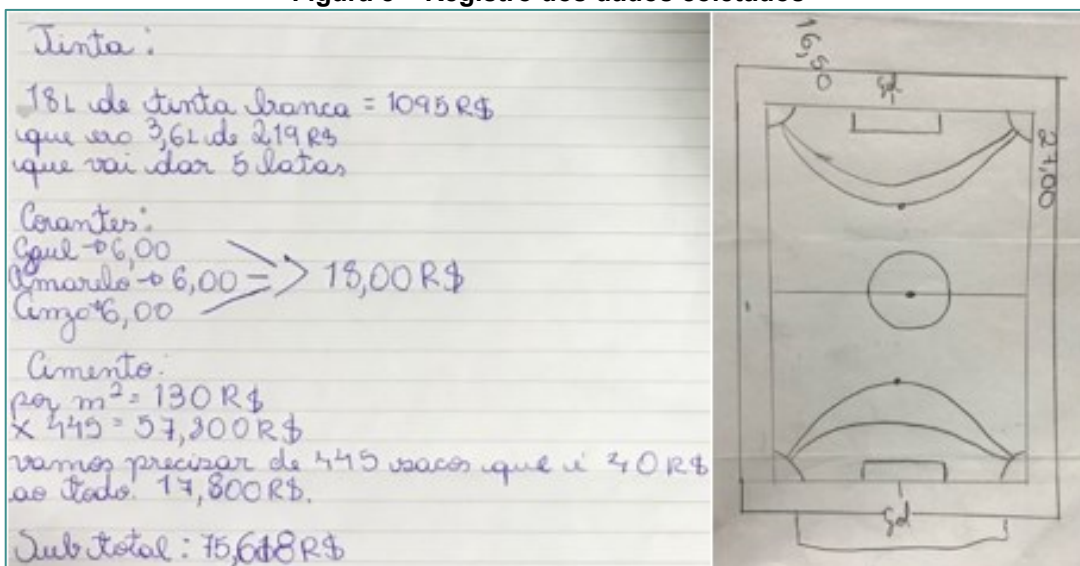 Figura 3 – Registro dos dados coletados
Tinta:
18L de tinta branca = 1095 R$
que era 3,6L de 219 R$
que vai dar 5 latas
Corantes:
Azul → 6,00
Amarelo → 6,00 = 18,00 R$
Cinza → 6,00
Cimento:
por m² = 130 R$
x 445 = 57,800 R$
vamos precisar de 445 sacos que é 40 R$
ao todo. 17,800 R$.
Sub total: 75,618 R$
16,50
gol
27,00
gol